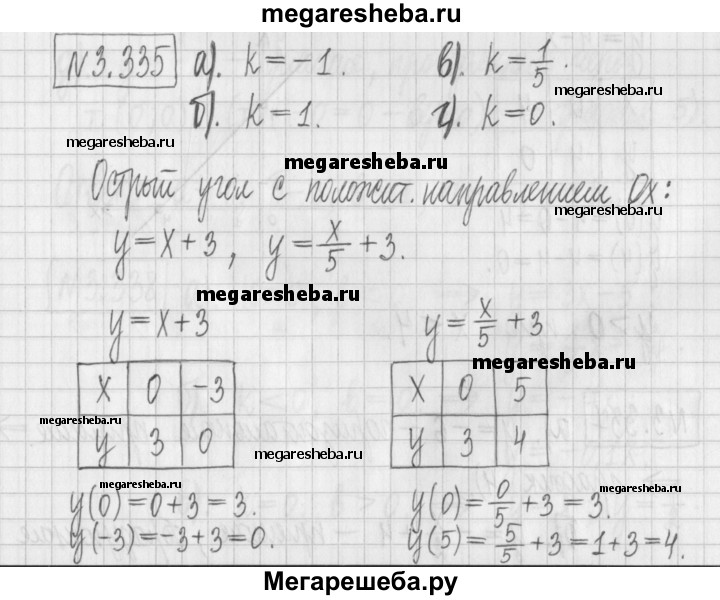 megaresheba.ru
№3.335 а). k=-1. в). k=1/5.
megaresheba.ru
б). k=1. г). k=0.
megaresheba.ru
megaresheba.ru
Острый угол с положит. направлением Ox:
megaresheba.ru
y=x+3, y=x/5+3.
megaresheba.ru
y=x+3 y=x/5+3
megaresheba.ru
x 0 -3 x 0 5
megaresheba.ru
y 3 0 y 3 4
megaresheba.ru
megaresheba.ru
y(0)=0+3=3. y(0)=0/5+3=3.
y(-3)=-3+3=0. y(5)=5/5+3=1+3=4.
Мегарешеба.ру